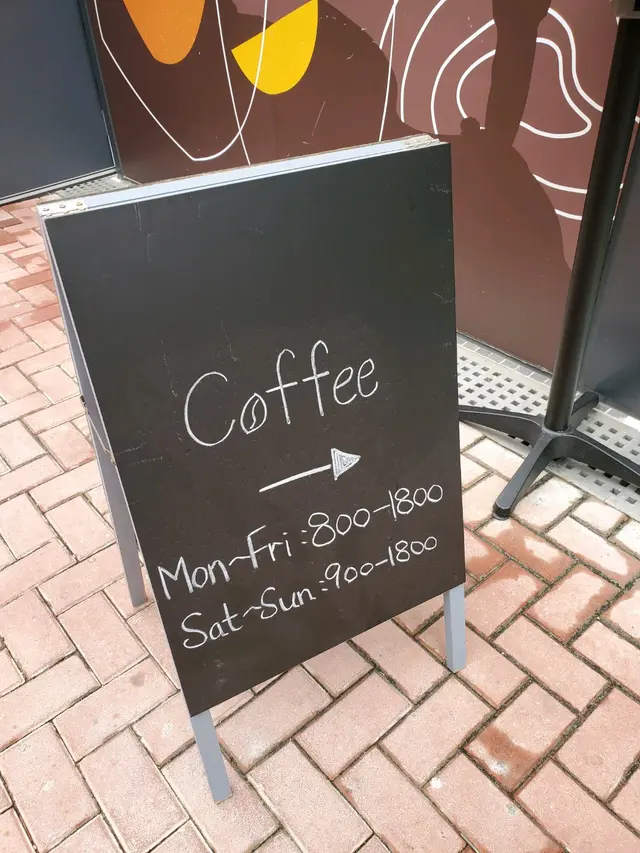 Coffee
Mon~Fri:800-1800
Sat~Sun:900-1800